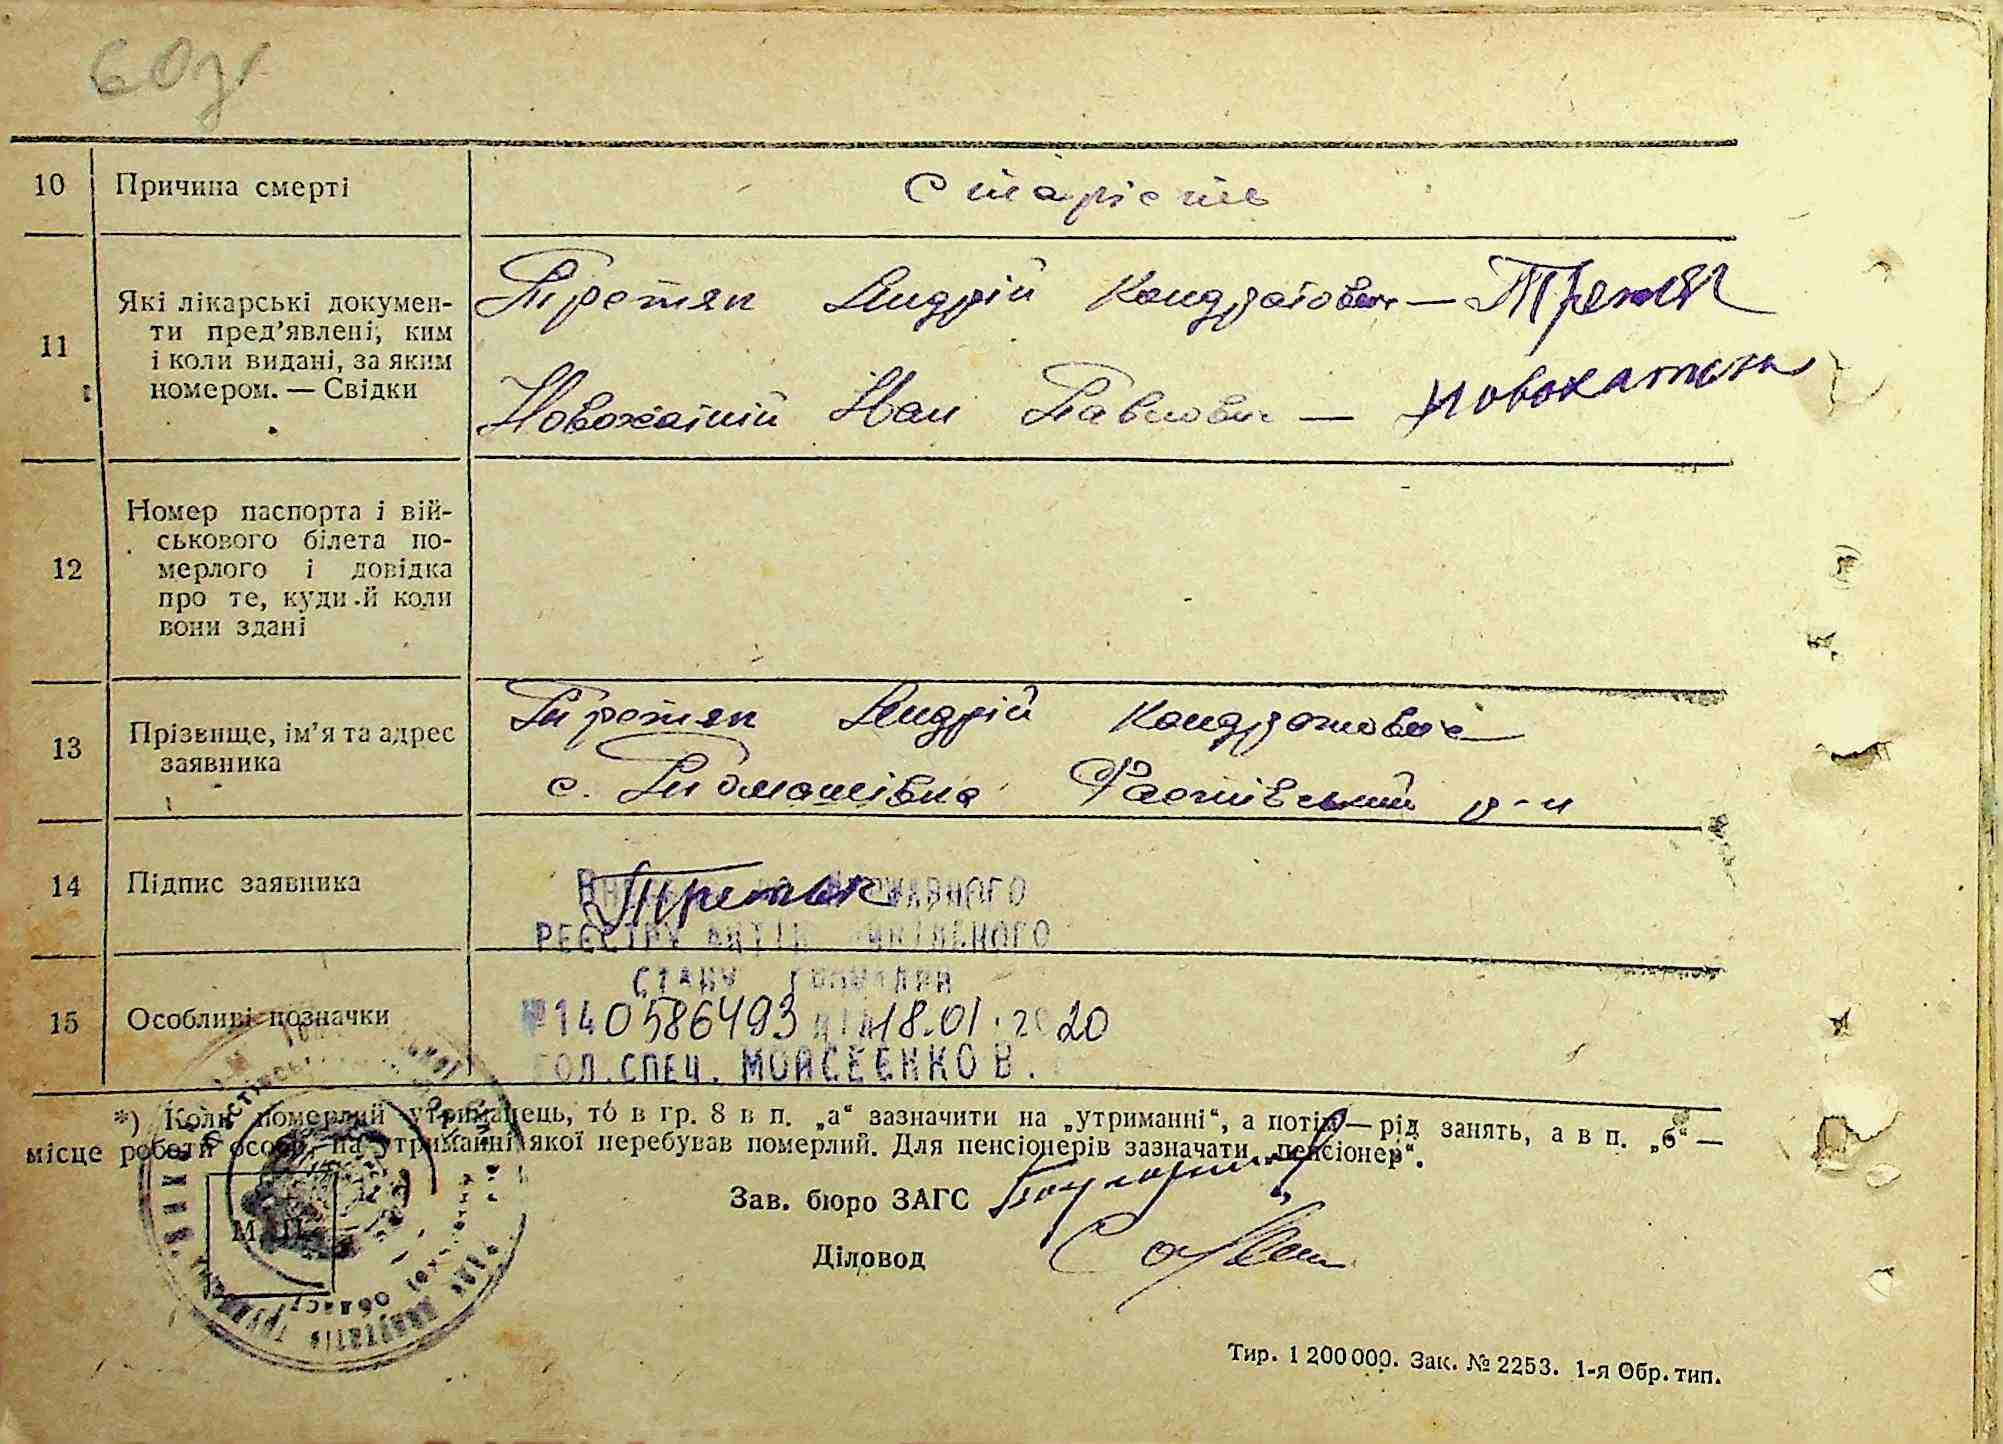 10 Причина смерті
старість
11 Які лікарські докумен-
ти пред’явлені, ким
і коли видані, за яким
номером. — Свідки
Третяк Андрій Кондратович — Третяк
Новохатній Іван Павлович —
12 Номер паспорта і вій-
ськового білета по-
мерлого і довідка
про те, куди й коли
вони здані
13 Прізвище, ім’я та адрес
заявника
Третяк Андрій Кондратович
с. Томашівка Фастівський р-н
14 Підпис заявника
Третяк
Державного
реєстру актів цивільного
стану громадян
№140586493 від 18.01.2020
гол.спец. Мойсеєнко В.
15 Особливі позначки
*) Коли померлий утриманець, то в гр. 8 в п. „а“ зазначити на „утриманні“, а потім — рід занять, а в п. „б“ —
місце роботи особи, на утриманні якої перебував померлий. Для пенсіонерів зазначати „пенсіонер“.
Зав. бюро ЗАГС
М. П.
Діловод
Тир. 1 200 000. Зак. № 2253. 1-я Обр. тип.